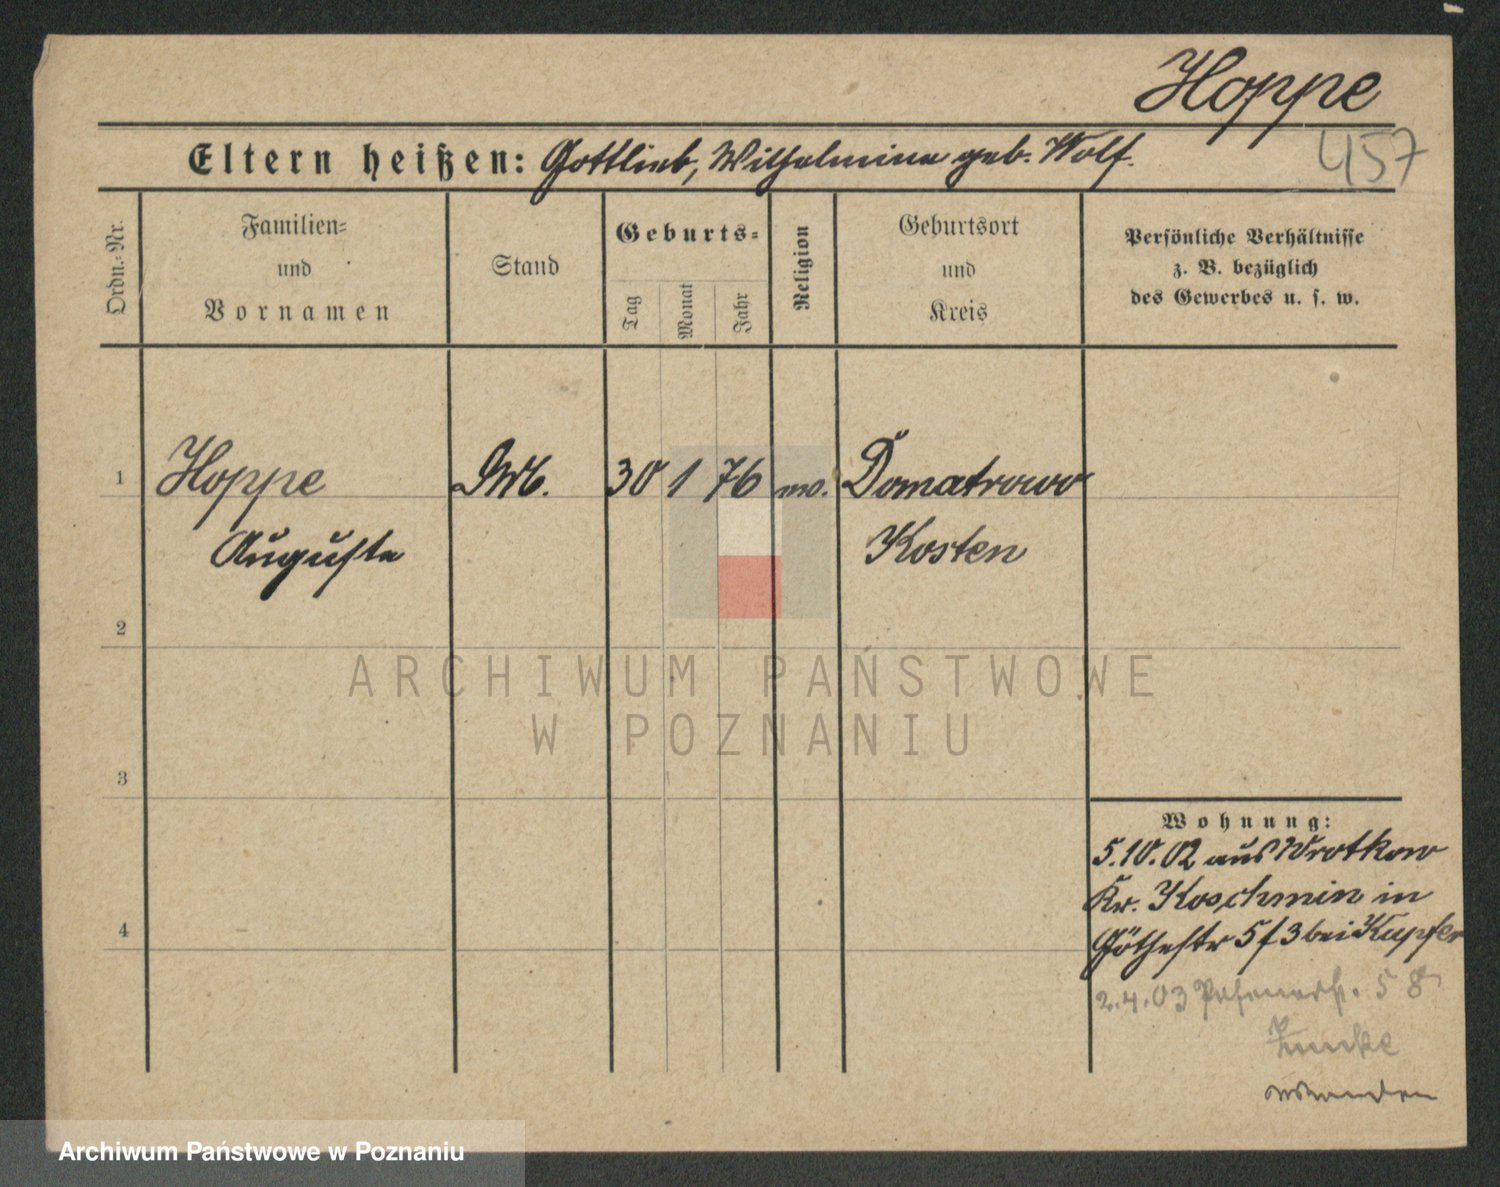 Hoppe
457
Eltern heißen: Gottlieb, Wilhelmine geb. Wolf.
Ordn.-Nr.
Familien-
und
Vornamen
Stand
Geburts-
Tag
Monat
Jahr
Religion
Geburtsort
und
Kreis
Persönliche Verhältnisse
z. B. bezüglich
des Gewerbes u. s. w.
1
Hoppe
30 1 76
Domatrowo
Auguste
Kosten
2
ARCHIWUM PAŃSTWOWE
W POZNANIU
3
Wohnung:
5.10.02 aus Wrotkow
Kr. Koschmin in
4
Göthestr 5 f 3 bei Kupfer
2.4.03 58
Archiwum Państwowe w Poznaniu